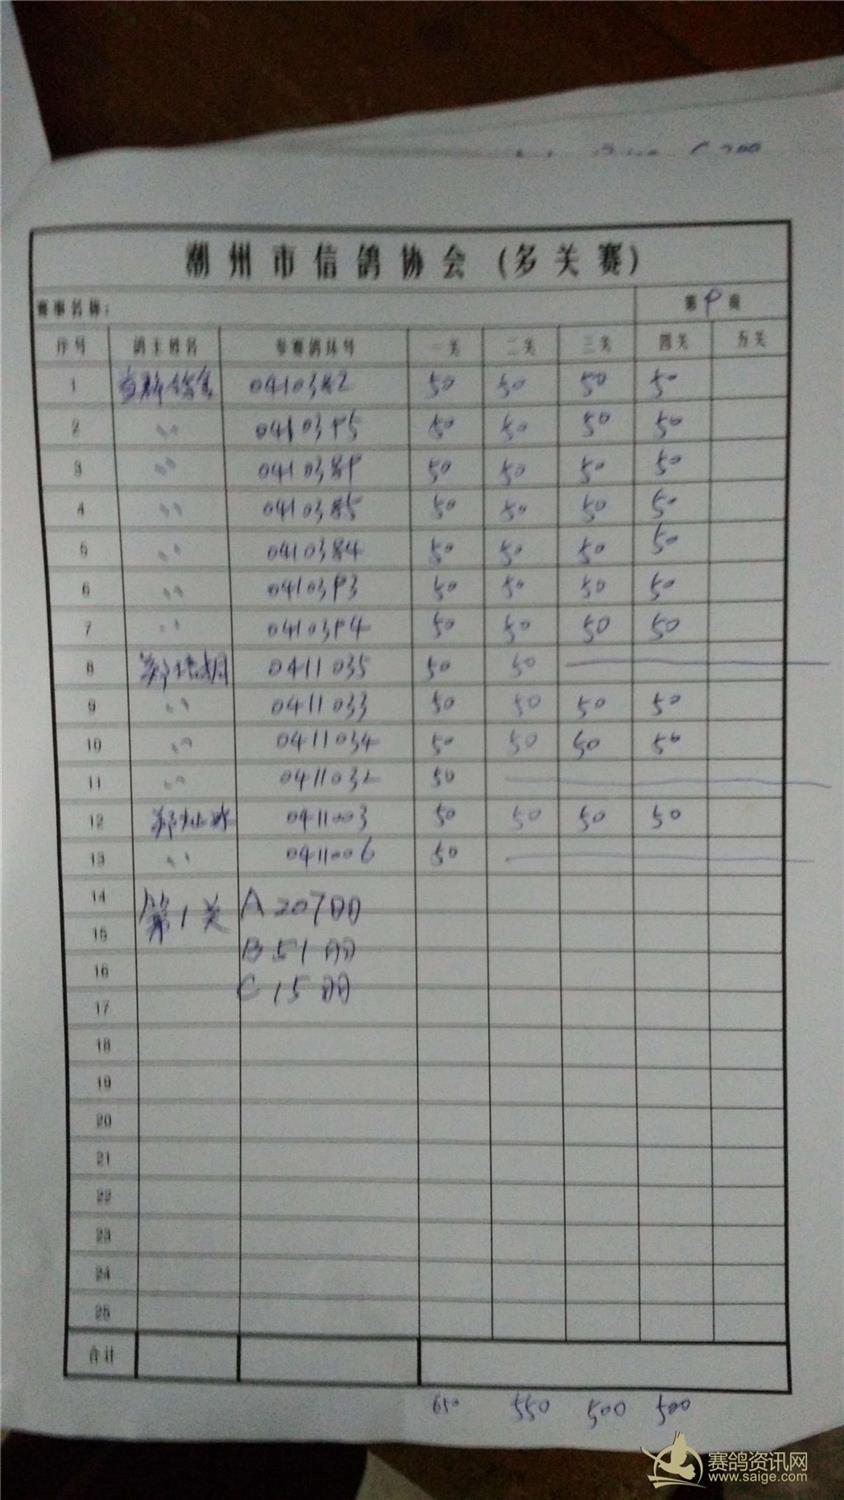 C 200
潮州市信鸽协会(多关赛)
赛事名称: 第9页
序号 鸽主姓名 参赛鸽环号 一关 二关 三关 四关 五关
1 0410382 50 50 50 50
2 〃 0410395 50 50 50 50
3 〃 0410389 50 50 50 50
4 〃 0410385 50 50 50 50
5 〃 0410384 50 50 50 50
6 〃 0410393 50 50 50 50
7 〃 0410394 50 50 50 50
8 0411035 50 50
9 〃 0411033 50 50 50 50
10 〃 0411034 50 50 50 50
11 〃 0411032 50
12 0411003 50 50 50 50
13 〃 0411006 50
14 第1关 A 20700
15
16 B 5100
17 C 1500
18
19
20
21
22
23
24
25
合计
650 550 500 500
赛鸽资讯网
www.saige.com